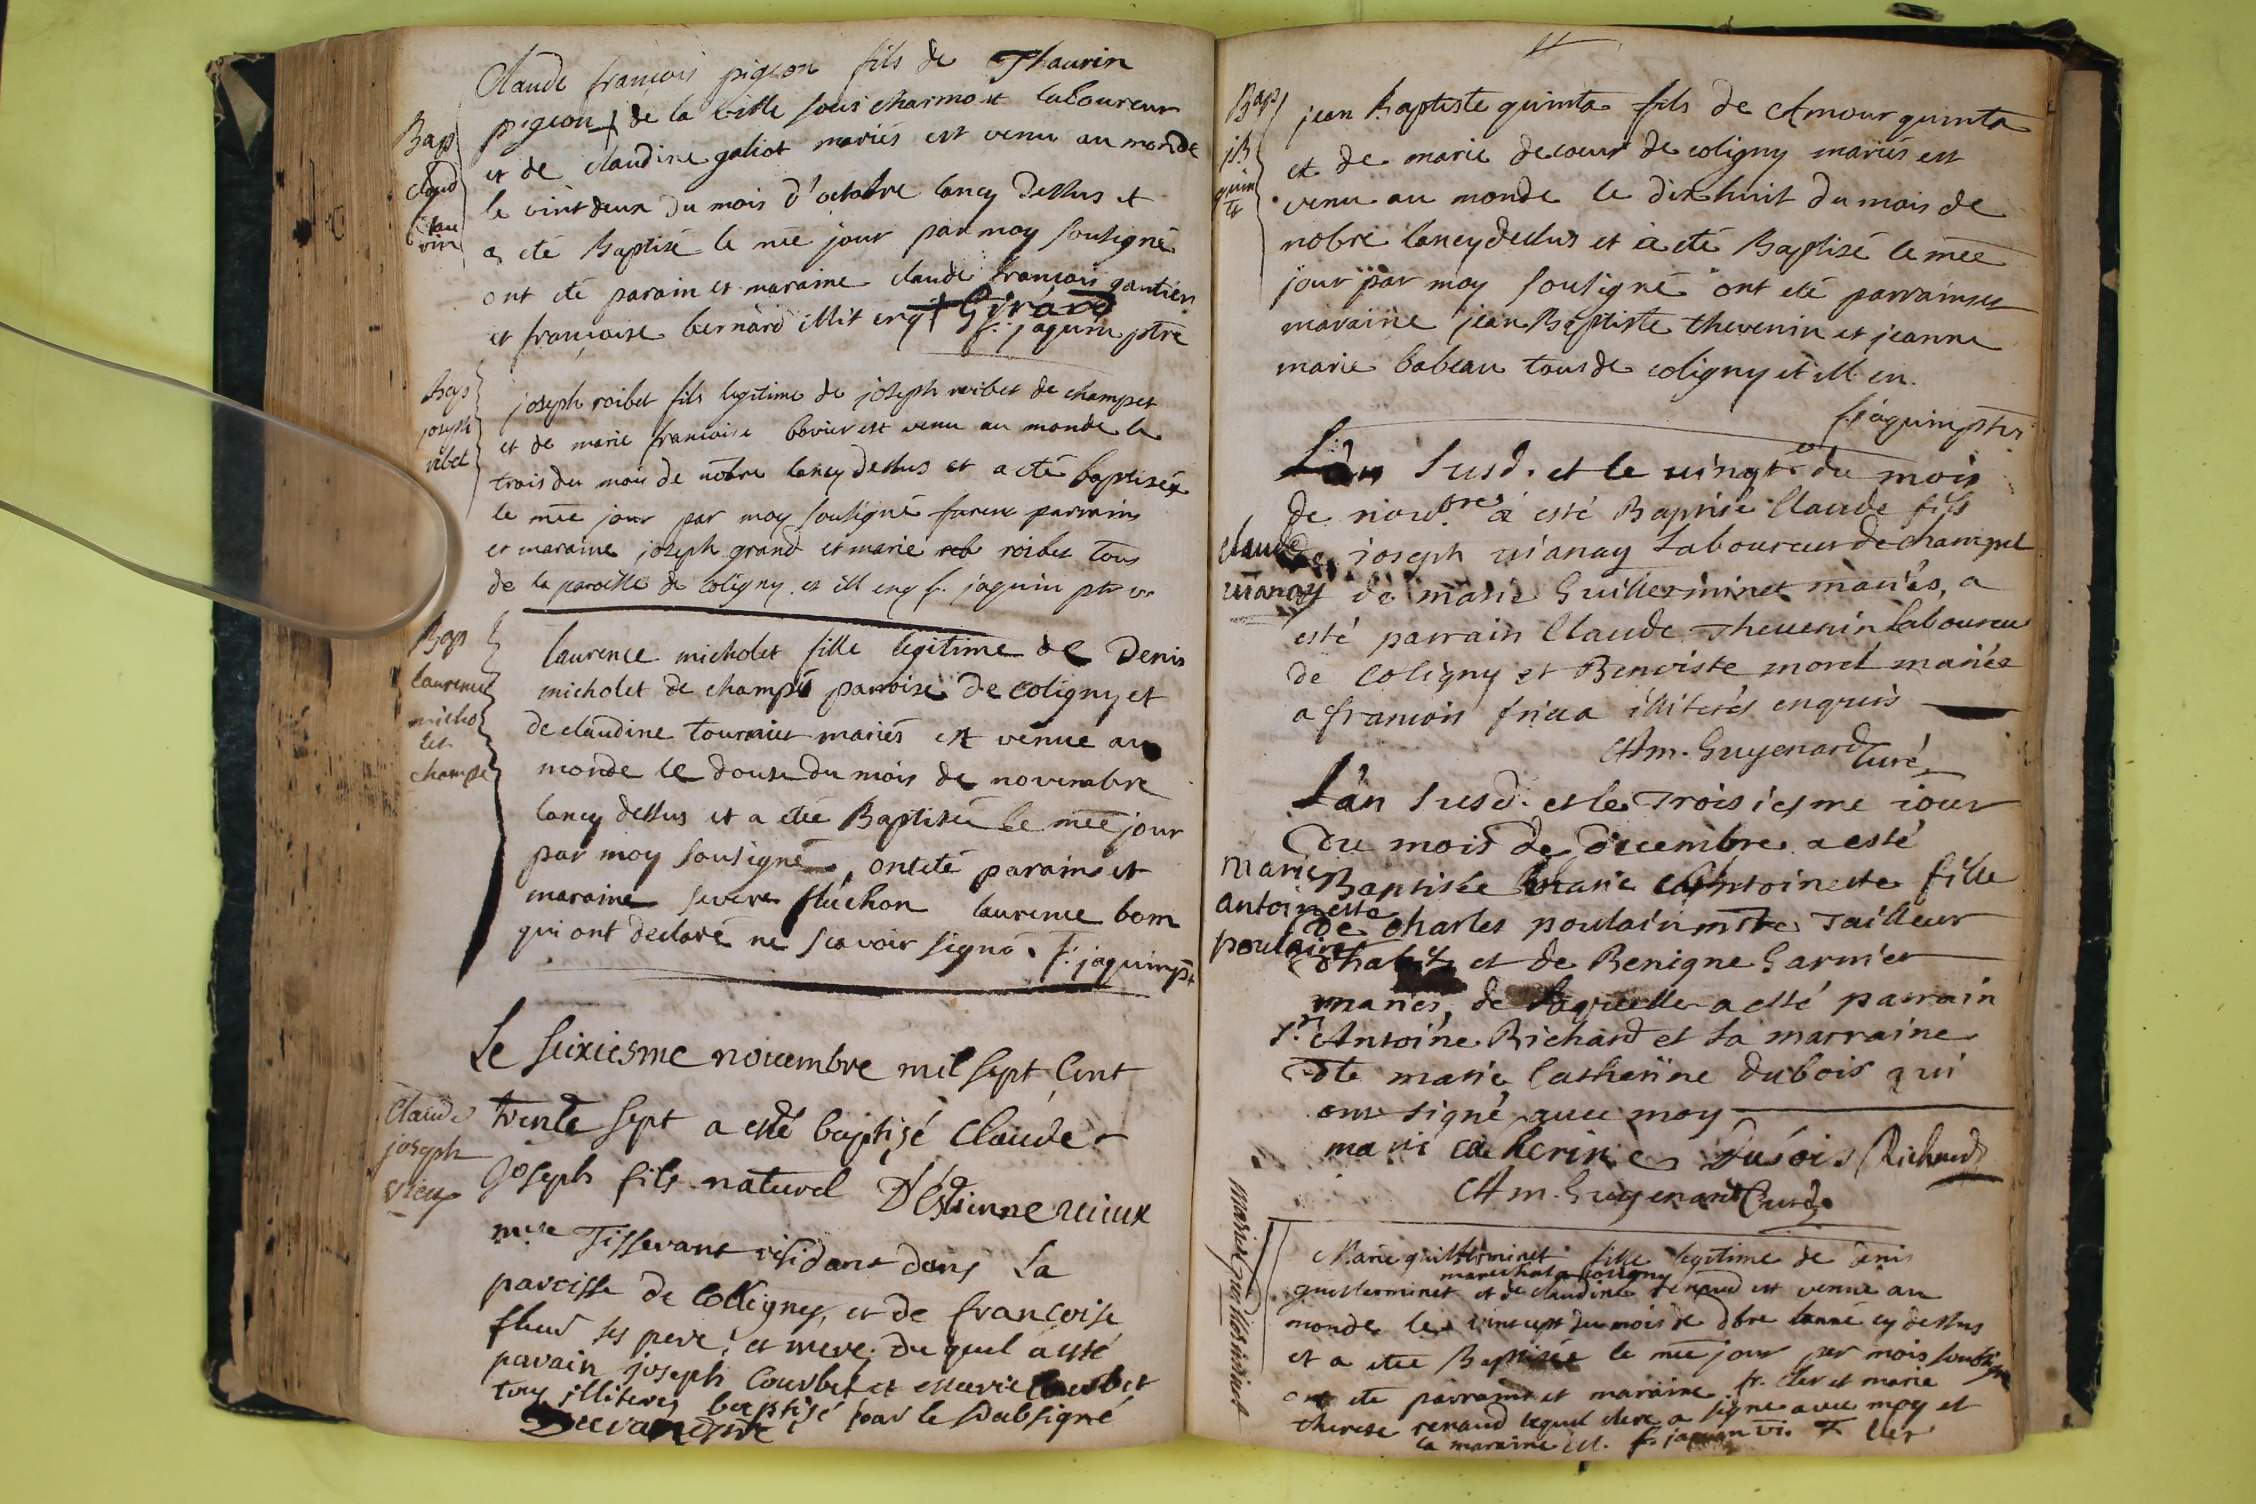 Claude françois pigeon fils de Thaurin
pigeon de la ville sous charmost laboureur
et de claudine galiot mariés est venu au monde
le vint deux du mois d'octobre lancy dessus et
a été Baptisé le mee jour par moy sousigné
ont eté parain et maraine claude francois gautier
et françoise bernard illit enq Girard
f. jaquin ptre
Bap
claud
thau
rin
joseph roibet fils legitime de joseph roibet de champet
et de marie francoise bovier est venu au monde le
trois du mois de nobre lancy dessus et a eté baptisé
le mee jour par moy sousigné furent parrain
et maraine joseph grand et marie roibet tous
de la paroisse de coligny et ill enq f. jaquin ptr v
Bap
joseph
ribet
laurence micholet fille legitime de Denis
micholet de champé paroise de coligny et
de claudine tournier mariés est venue au
monde le douse du mois de novembre
lancy dessus et a eté Baptisée le mee jour
par moy sousigné, ont eté parain et
maraine laurence bom
qui ont declaré ne scavoir signé. f. jaquin pt
Bap
laurence
micho
let
champé
Le sixiesme nouembre mil sept Cent
trente sept a esté baptizé Claude
Joseph fils naturel D'Estienne uieux
mtre Tisserant residant dans La
paroisse de Colligny, et de françoise
ses pere, et mere. Du quel a esté
parain joseph Courbet et marie Courbet
tous illiteres baptisé par le soubsigné
Claude
joseph
vieux
Bap
jB
quin
ta
jean Baptiste quinta fils de Amour quinta
et de marie decoeur de coligny mariés est
venu au monde le dix huit du mois de
nobre lancy dessus et a eté Baptisé le mee
jour par moy sousigné ont eté parrain et
maraine jean Baptiste thevenin et jeanne
marie babeau tous de coligny et ill en.
f jaquin ptr
L'an susd. et le uingt du mois
de noubre a esté Baptisé Claude fils
de joseph uianay Laboureur de champel
et de marie Guillerminet mariés, a
esté parrain Claude Theuenin Laboureu
de Coligny et Benoiste morel mariée
a francois illiterés enquis
Am. Guyenard Curé
claude
uianay
L'an susd. et le Troisiesme iour
du mois de decembre a esté
Baptisée Marie Anthoinette fille
de Charles poulain mtre Tailleur
d'habits et de Benigne Garnier
mariés, de laquelle a esté parrain
Sr Antoine Richard et La marraine
dlle marie Catherine dubois qui
ont signé auec moy
marie catherine Dubois Richard
Am. Guyenard Curé
marie
antoinette
poulain
Marie guillerminet fille legitime de denis
guillerminet marechal a coligny et de claudine renaud est venue au
monde le vint sept du mois de dbre lanné cy dessus
et a etée Baptisée le mee jour par mois soubsigné
ont eté parrain et maraine fr. cler et marie
therese renaud lequel clere a signé avec moy et
la maraine ill. f. jaquin vi. F Cler
marie Guillerminet